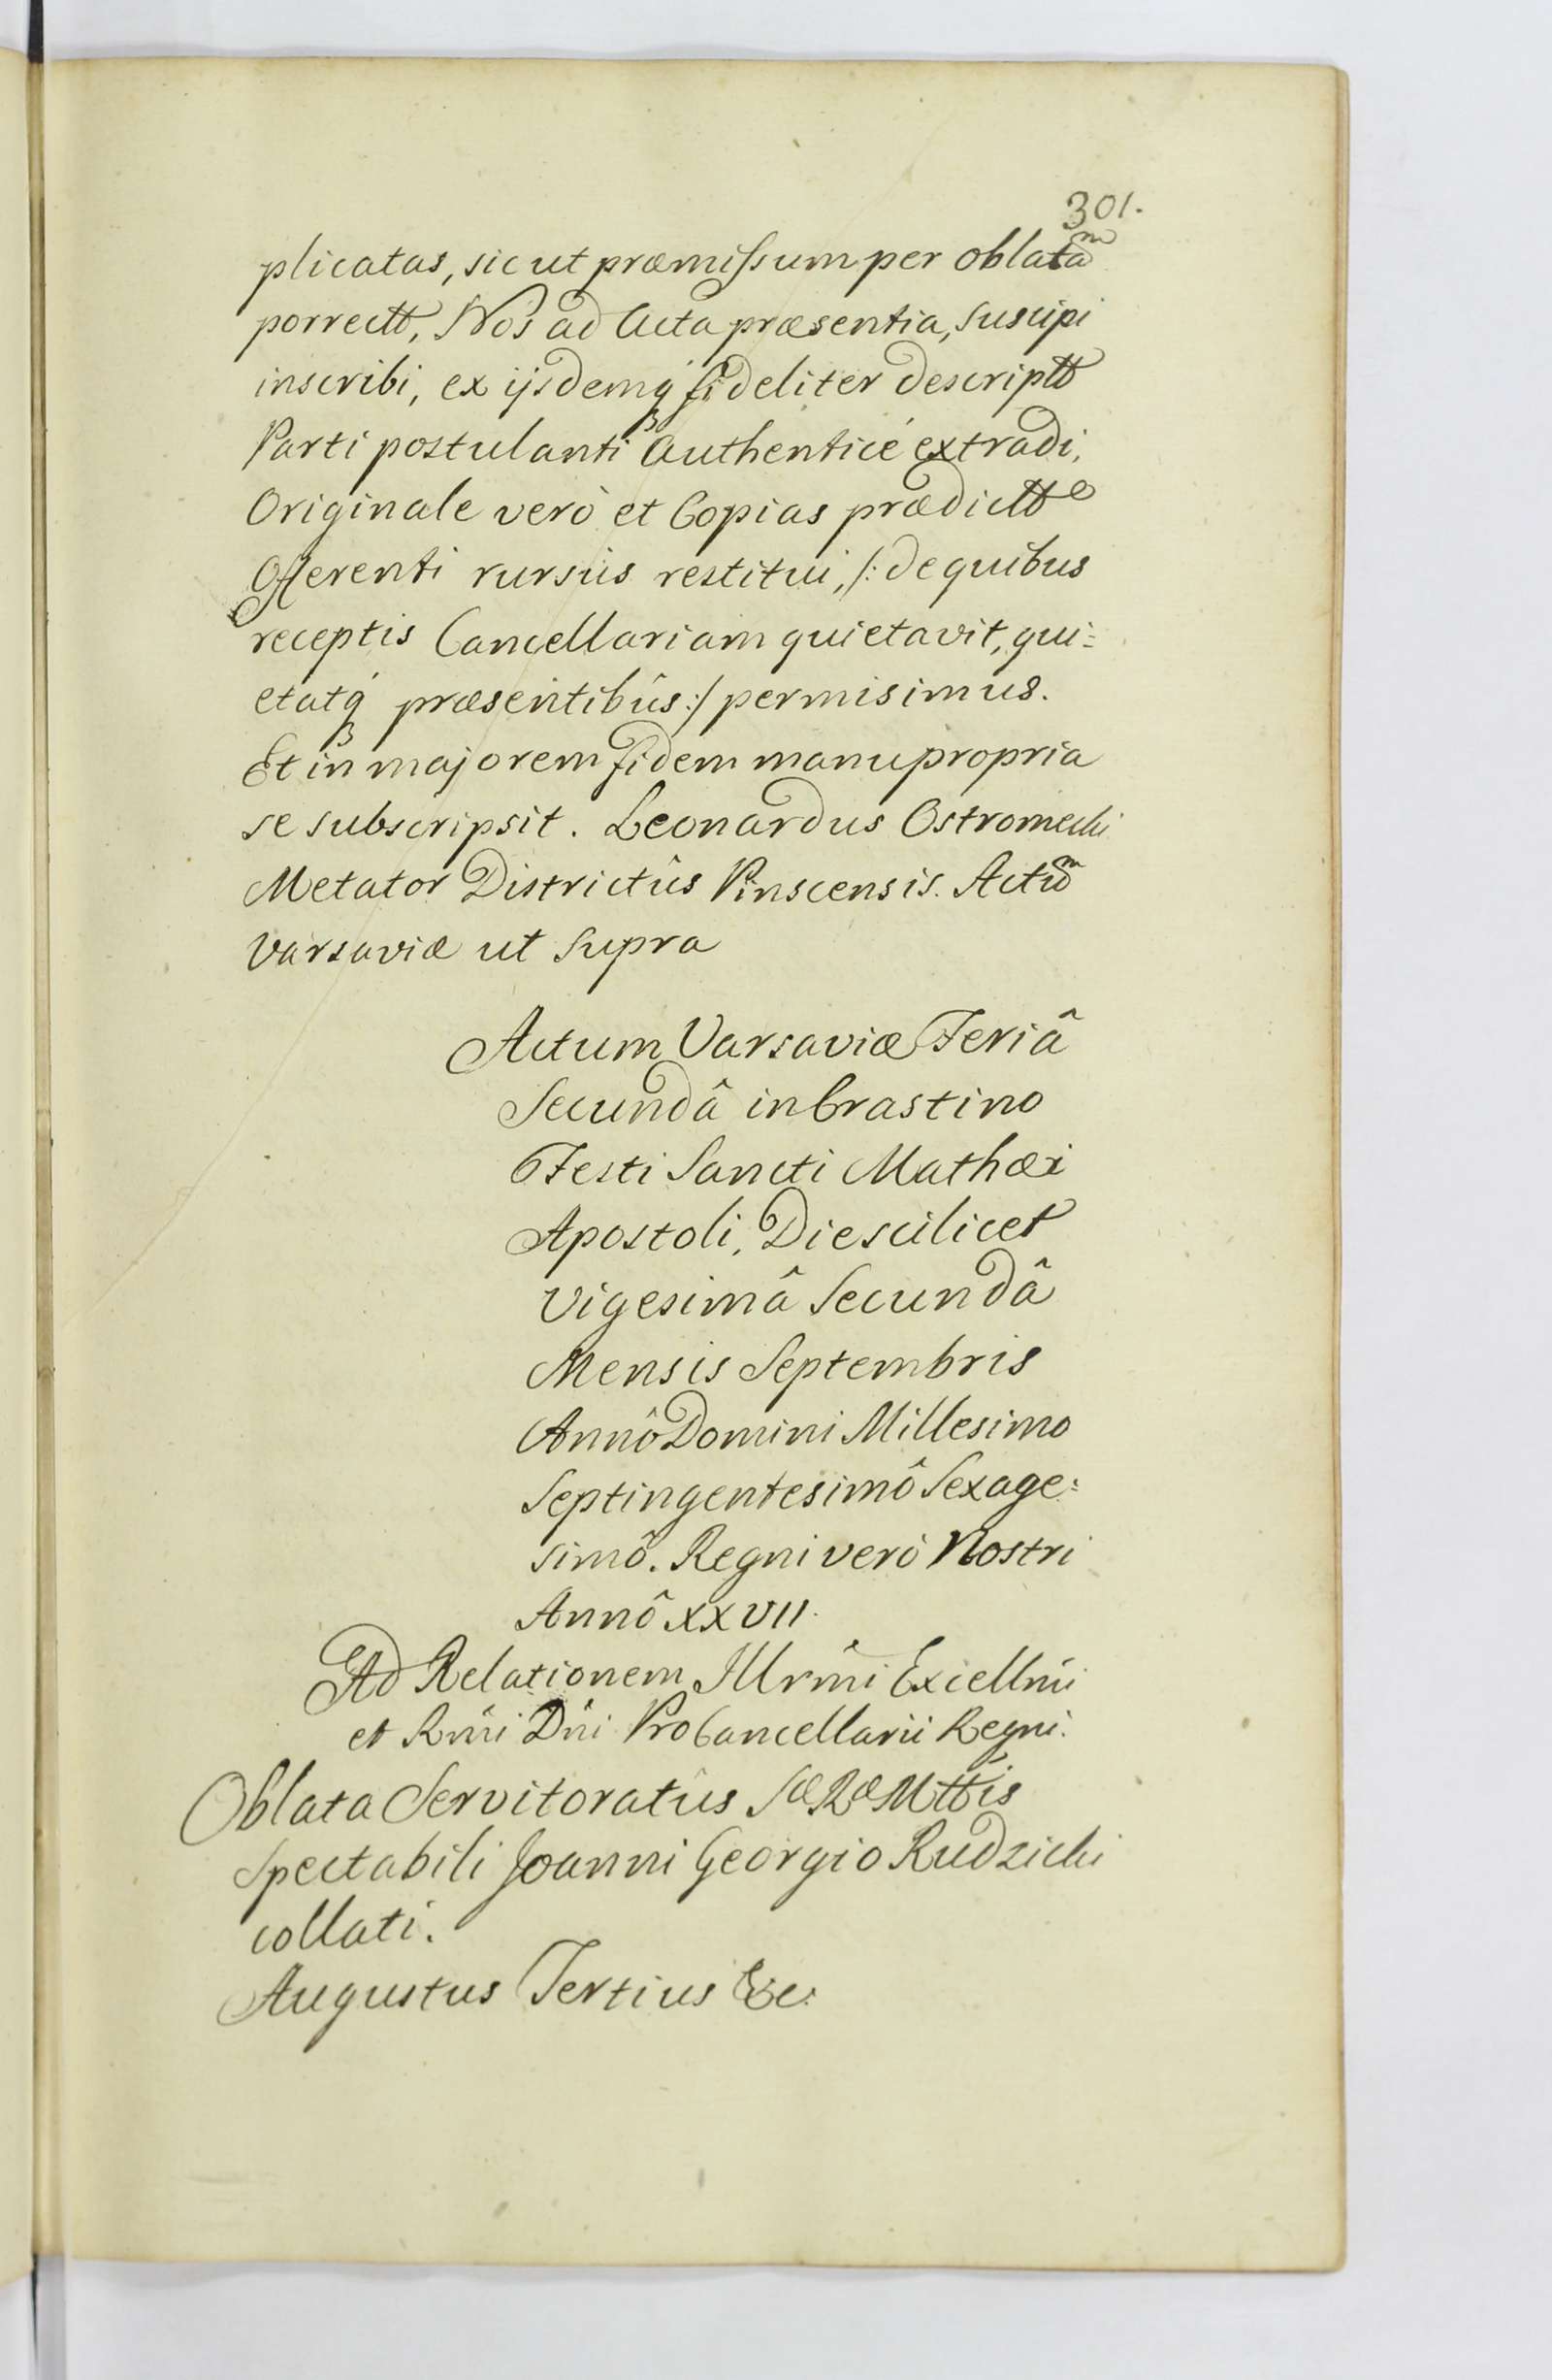 301.
plicatas, sicut præmissum per oblatãm
porrectt, Nos ad Acta præsentia, suscipi
inscribi, ex ijsdemq́ fideliter descriptt
Parti postulanti Authenticé extradi,
Originale verò et Copias prædictt
Offerenti rursùs restitui, /: de quibus
receptis Cancellariam quietavit, qui=
etatq́ præsentibûs :/ permisimus.
Et in majorem fidem manu propria
se subscripsit. Leonardus Ostromecki
Metator Districtûs Pinscensis. Actũm
Varsaviæ ut supra
Actum Varsaviæ Feriâ
Secundâ in Crastino
Festi Sancti Mathæi
Apostoli, Die scilicet
Vigesimâ Secundâ
Mensis Septembris
Annô Domini Millesimo
Septingentesimô Sexage=
simô. Regni verò Nostri
Annô XXVII.
Ad Relationem Illrm̃i Excellm̃i
et Rm̃i Dñi ProCancellarii Regni.
Oblata Servitoratûs SæRæMttis
Spectabili Joanni Georgio Rudzicki
collati.
Augustus Tertius &c.